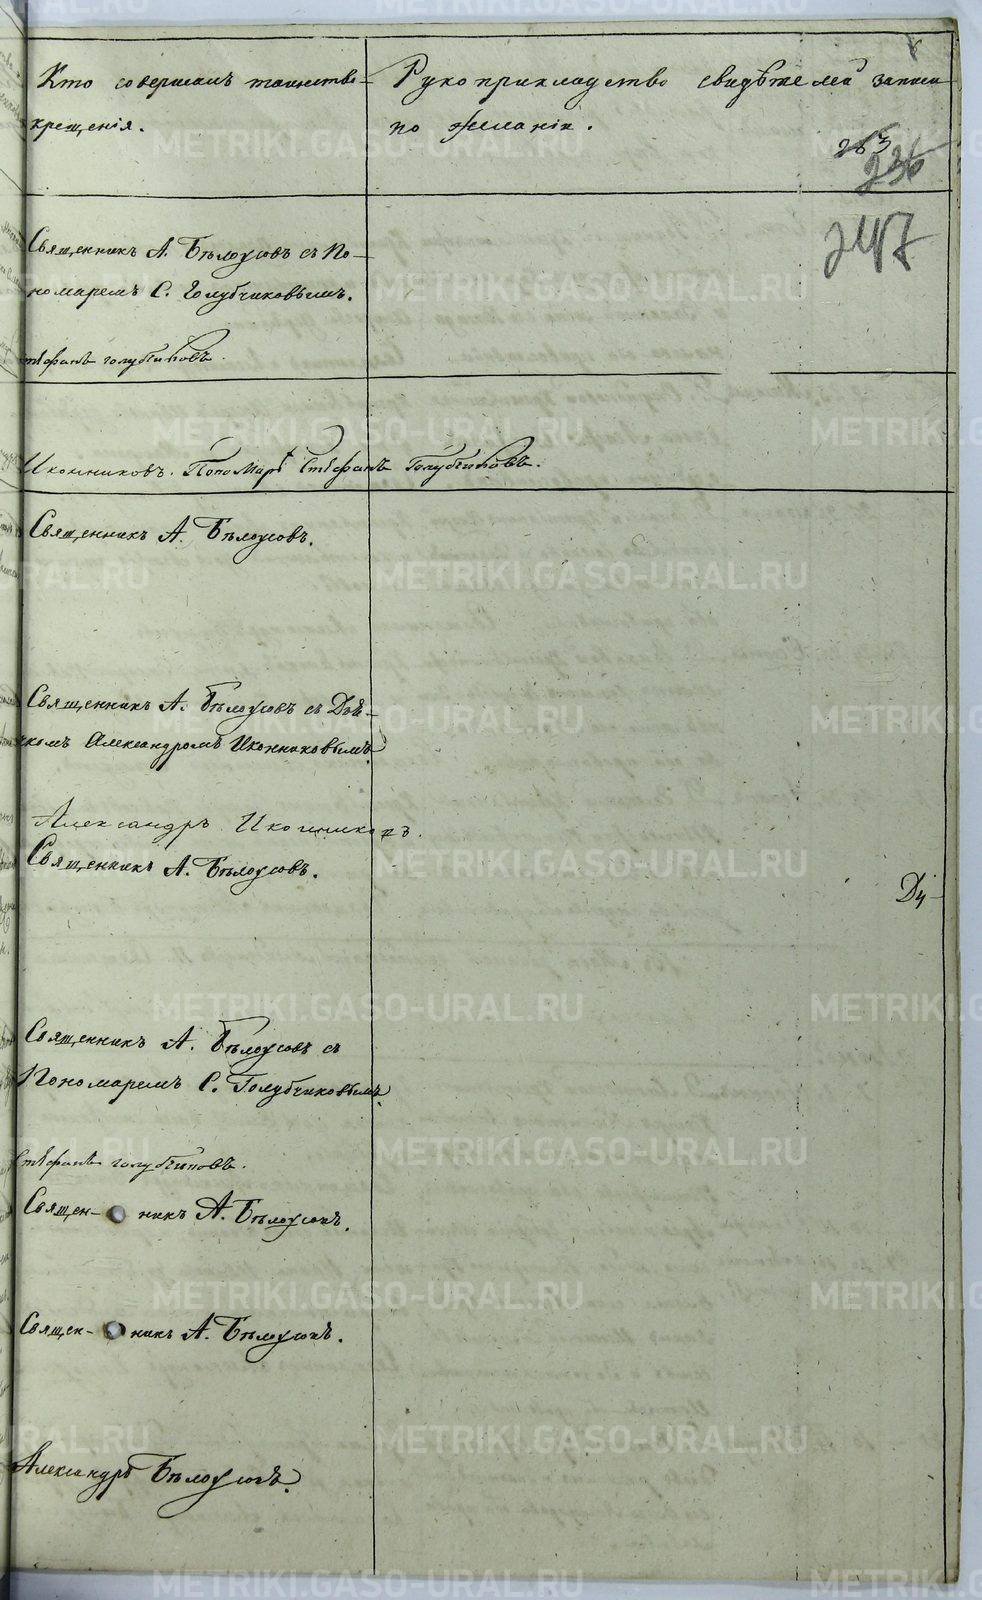 Кто совершалъ таинство
крещенія.
Рукоприкладство свидѣтелей записи
по желанію.
263
236
247
Священникъ А. Бѣлоусовъ съ По-
номаремъ С. Голубчиковымъ.
Стефанъ Голубчиковъ.
Иконниковъ. Пономарь Стефанъ Голубчиковъ.
Священникъ А. Бѣлоусовъ.
Священникъ А. Бѣлоусовъ съ Дья-
чкомъ Александромъ Иконниковымъ.
Александръ Иконниковъ.
Священникъ А. Бѣлоусовъ.
Ді-
Священникъ А. Бѣлоусовъ съ
Пономаремъ С. Голубчиковымъ.
Стефанъ Голубчиковъ.
Священ- никъ А. Бѣлоусовъ.
Священ- никъ А. Бѣлоусовъ.
Александръ Бѣлоусовъ.
METRIKI.GASO-URAL.RU